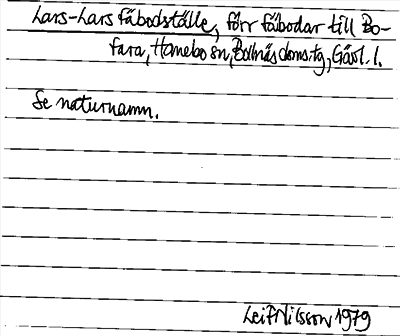 Lars-Lars fäbodställe, förr fäbodar till Bo-
fara, Hanebo sn, Bollnäs domstg, Gävl. l.
Se naturnamn.
Leif Nilsson 1979